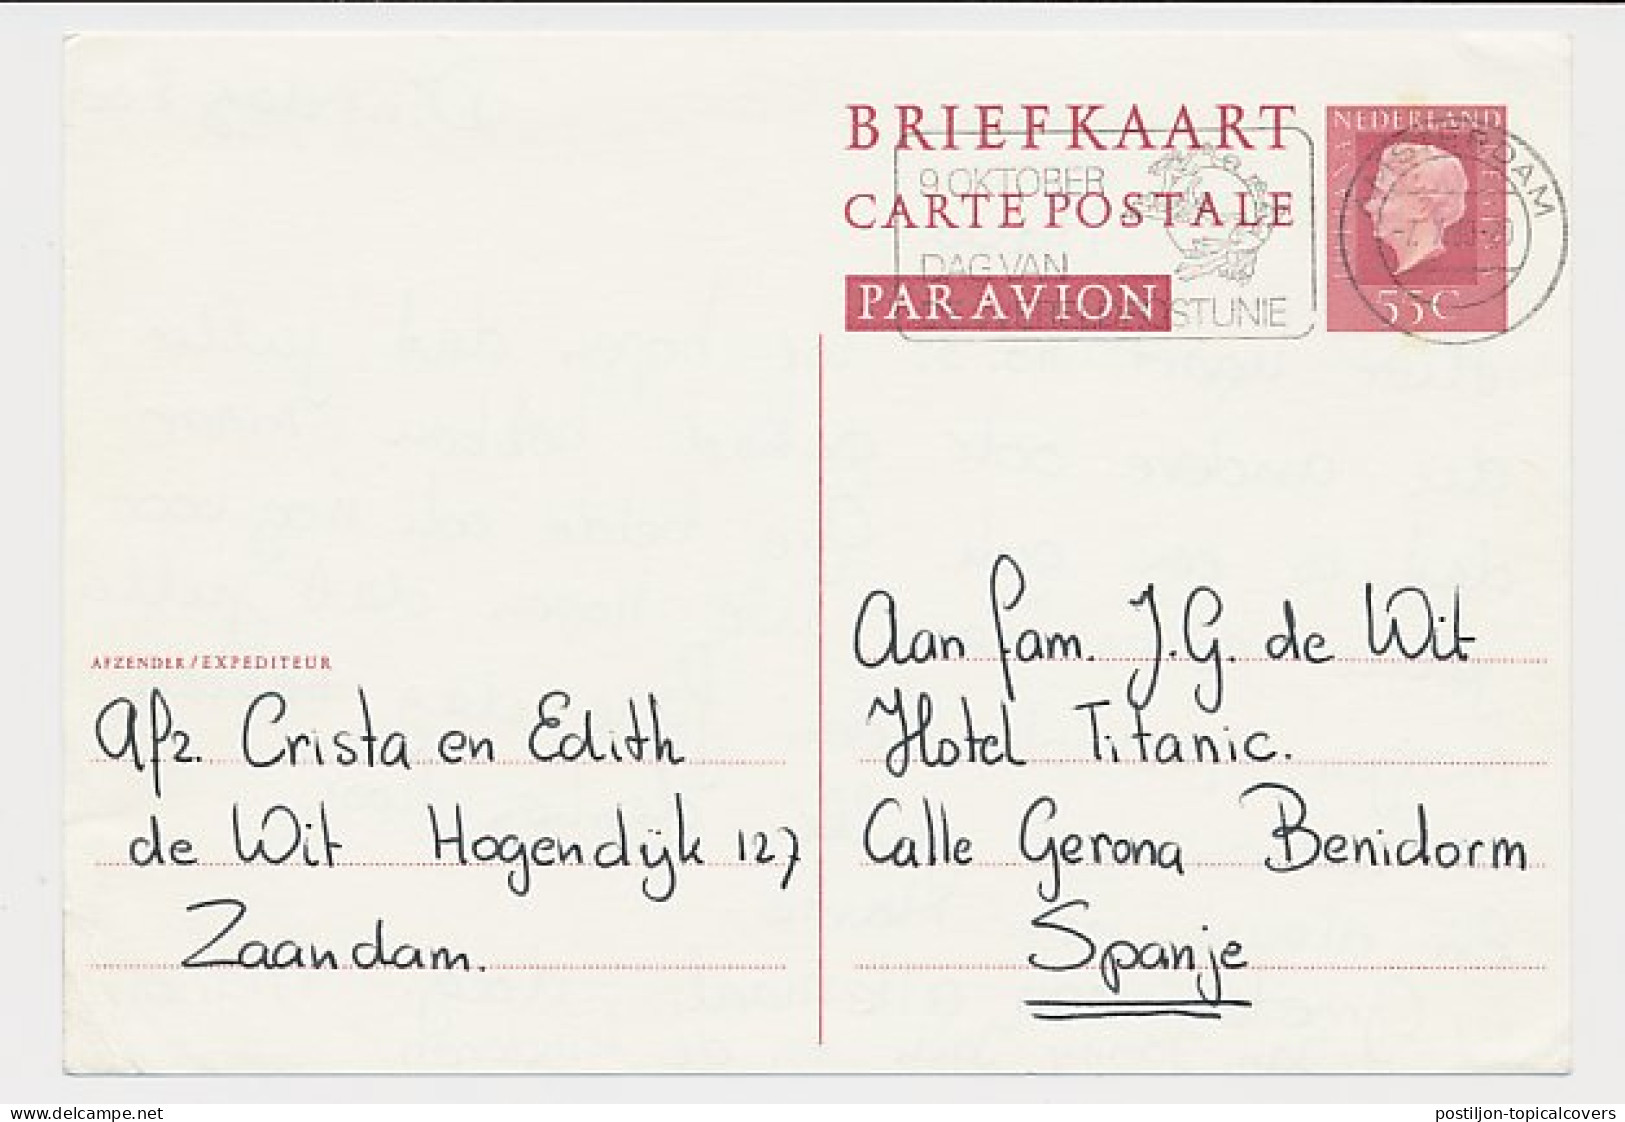 BRIEFKAART
CARTE POSTALE
PAR AVION
9 OKTOBER
DAG VAN
POSTUNIE
NEDERLAND
55C
AMSTERDAM
Aan fam. J.G. de Wit
Hotel Titanic.
Calle Gerona Benidorm
Spanje
AFZENDER/EXPEDITEUR
Afz. Crista en Edith
de Wit Hogendijk 127
Zaandam.
Uw ID op www.delcampe.net is
postiljon-topicalcovers